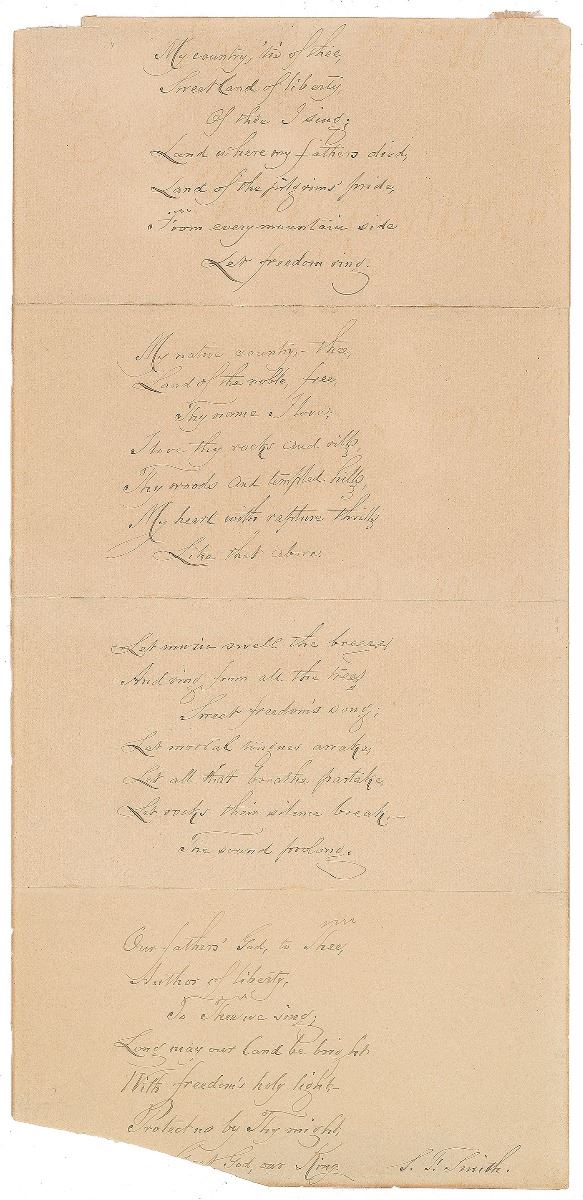 My country, 'tis of thee,
Sweet land of liberty,
Of thee I sing;
Land where my fathers died,
Land of the pilgrims' pride,
From every mountain side
Let freedom ring.
My native country,- thee,
Land of the noble, free,
Thy name I love;
I love thy rocks and rills,
Thy woods and templed hills,
My heart with rapture thrills
Like that above.
Let music swell the breeze,
And ring from all the trees
Sweet freedom's song;
Let mortal tongues awake,
Let all that breathe partake,
Let rocks their silence break,-
The sound prolong.
Our fathers' God, to Thee,
Author of liberty,
To Thee we sing;
Long may our land be bright
With freedom's holy light-
Protect us by Thy might,
God, our King.
S. F. Smith.